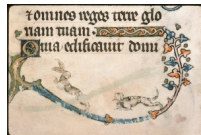 ⁊ omnes reges terre glo
riam tuam.
Quia edificauit domi